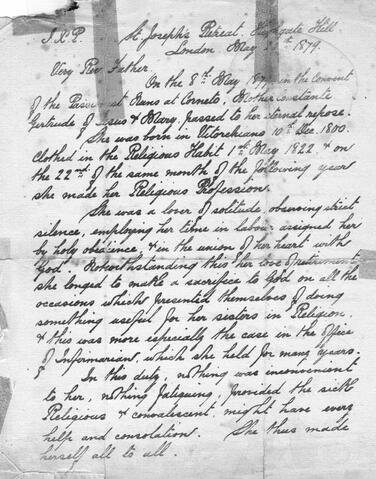 J.X.P. St Joseph's Retreat, Highgate Hill
London May th 1879.
Very Rev. Father,
On the 8th May 187 in the Convent
of the Passionist Nuns at Corneto, Mother Constante
Gertrude of Jesus & Mary, passed to her eternal repose.
She was born in Vitorchiano 10th Dec. 1800.
Clothed in the Religious Habit 1st May 1822, & on
the 22nd of the same month of the following year
she made her Religious Profession.
She was a lover of solitude, observing strict
silence, employing her time in labour assigned her
by holy obedience & in the union of her heart with
God. Notwithstanding this her love of retirement
she longed to make a sacrifice to God on all the
occasions which presented themselves of doing
something useful for her sisters in Religion,
& this was more especially the case in the Office
of Infirmarian, which she held for many years.
In this duty, nothing was inconvenient
to her, nothing fatiguing, provided the sick
Religious & convalescent, might have every
help and consolation. She thus made
herself all to all.